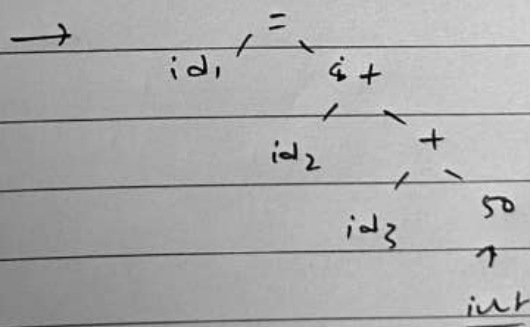 → =
id₁ +
id₂ +
id₃ 50
↑
int